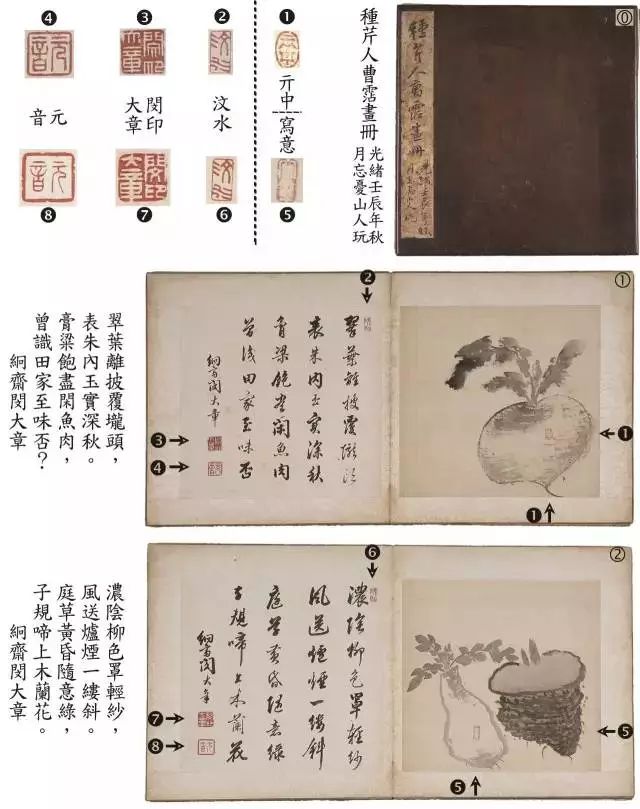 ⓪
種芹人曹霑畫冊
光緒壬辰年秋
月忘憂山人玩
種芹人曹霑畫冊
光緒壬辰年秋
月忘憂山人玩
❶
亓中
寫意
❺
❷
汶水
❻
❸
閔印
大章
❼
❹
元
音
❽
①
❶
❶
❷
翠葉離披覆壠頭
表朱內玉實深秋
膏粱飽盡閑魚肉
曾識田家至味否
絅齋閔大章
❸
❹
翠葉離披覆壠頭，
表朱內玉實深秋。
膏粱飽盡閑魚肉，
曾識田家至味否？
絅齋閔大章
②
❺
❺
❻
濃陰柳色罩輕紗
風送爐煙一縷斜
庭草黃昏隨意綠
子規啼上木蘭花
絅齋閔大章
❼
❽
濃陰柳色罩輕紗，
風送爐煙一縷斜。
庭草黃昏隨意綠，
子規啼上木蘭花。
絅齋閔大章